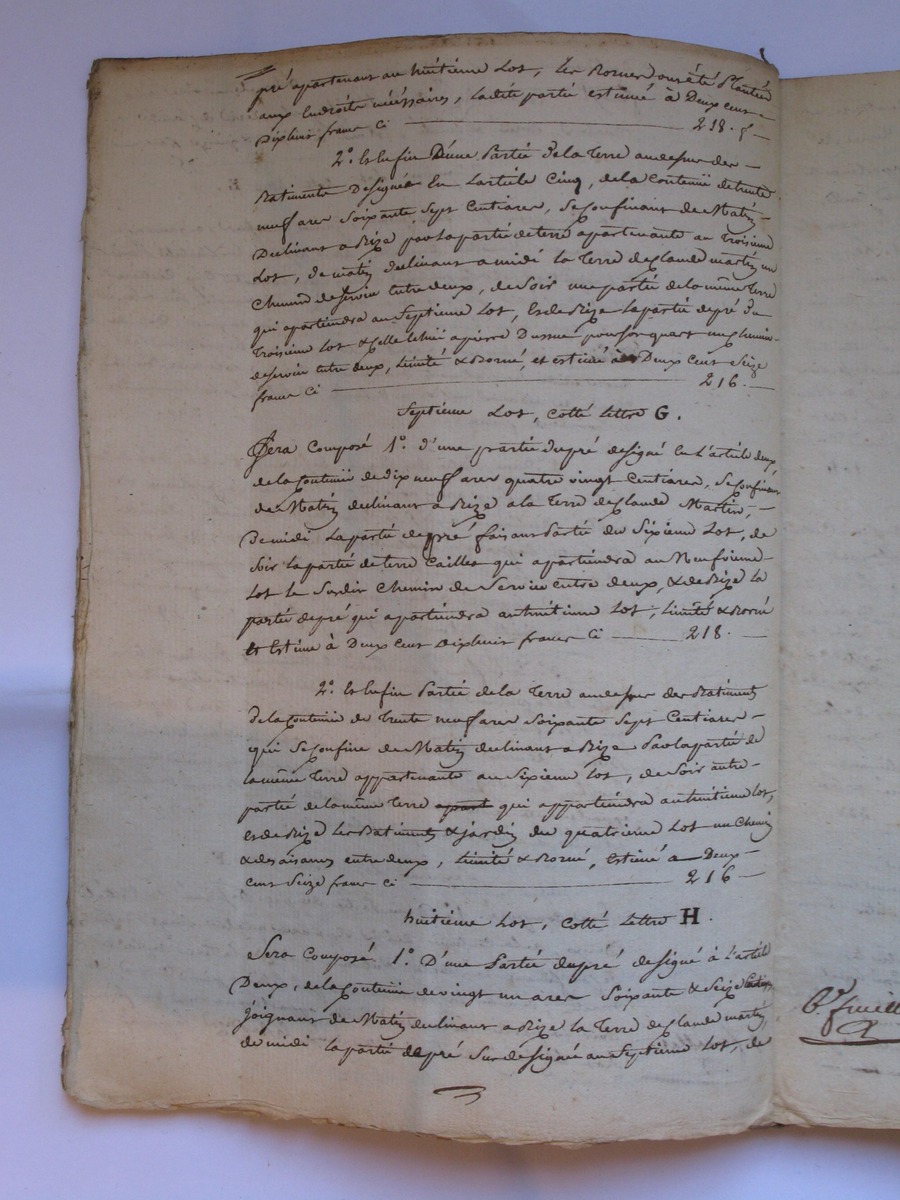 pré apartenant au huitième Lot, les Bornes ont été Plantées
aux Endroits nécéssaires, ladite partie estimée à Deux cent
Dixhuit francs Ci 218. f
2.° Et Enfin D'une Partie de la Terre audessus des
Batiments Designée En L'article Cinq, de la Contenüe de trente
neuf ares Soixante Sept Centiares, Se Confinant de Matin
Declinant a Bize par la partie de terre apartenante au Troisieme
Lot, de matin declinant a midi la Terre de Claude martin un
Chemin de servin entre deux, de Soir une partie de la même Terre
qui apartiendra au Septieme Lot, et de Bize la partie de pré du
Troisieme Lot & Celle Echüe a pierre pour son quart un Chemin
de servin entre deux, Limité & Borné, et estimé à Deux Cent Seize
francs Ci 216.
Septième Lot, Cotté Lettre G.
Sera Composé 1.° d'une partie du pré designé en L'article deux
de la Contenüe de dix neuf ares quatre vingt Centiares, Se Confinant
de Matin declinant a Bize a la Terre de Claude Martin,
De midi la partie de pré faisant Partie du Sixieme Lot, de
Soir la partie de terre Cailles qui apartiendra au Neufvieme
Lot le Surdit Chemin de Servin entre deux, & de Bize la
partie de pré qui apartiendra au huitième Lot, Limité & Borné
et Estimé à Deux Cent Dixhuit francs Ci 218.
2.° Et Enfin Partie de la Terre audessus des Batiments
de la Contenüe de Trente neuf ares Soixante Sept Centiares
qui Se Confine de Matin declinant a Bize Par la partie de
la même Terre appartenante au Sixieme Lot, de Soir autre
partie de la même Terre apart qui appartiendra au huitième Lot,
et de Bize les Batiments & jardin du quatrieme Lot un Chemin
& des aisances entre deux, Limité & Borné, Estimé a Deux
Cent Seize francs Ci 216
huitième Lot, Cotté Lettre H.
Sera Composé 1.° D'une Partie du pré designé à L'article
Deux, de la Contenüe de vingt un ares Soixante & Seize
Joignant de Matin declinant a Bize la Terre de Claude martin
de midi la partie de pré Sur designée au Septieme Lot, de